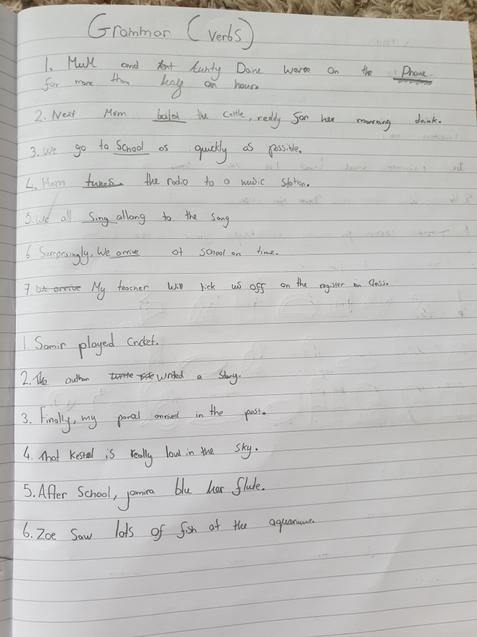 Grammar (verbs)
1. Mum and Aunty Dane were on the Phone
for more than an hour
2. Next Mom the cattle, reddy for her morning drink.
3. We go to School as quickly as possible.
4. Mom tunes the radio to a music station.
5. We all Sing allong to the song
6 Surprisingly, We arrive at school on time.
7 My teacher Will tick us off on the register in class.
1. Samir played cricket.
2. The author writed a story.
3. Finally, my parcel arrived in the post.
4. That Kestel is really low in the sky.
5. After School, jamira blu her flute.
6. Zoe Saw lots of fish at the aquarium.